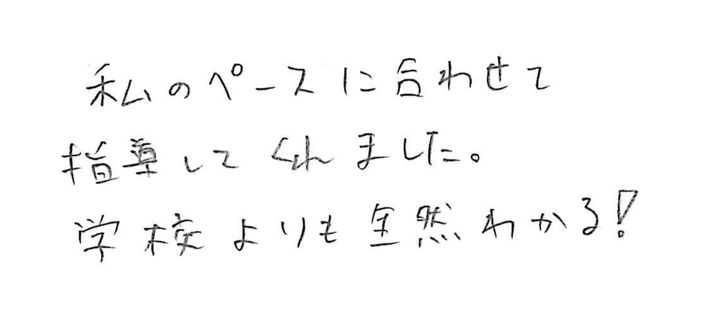 私のペースに合わせて
指導してくれました。
学校よりも全然わかる!